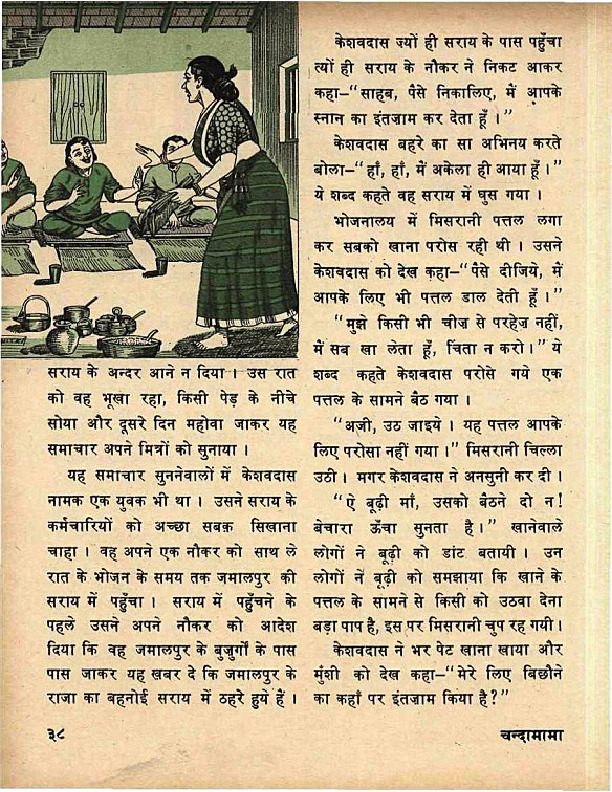 सराय के अन्दर आने न दिया । उस रात
को वह भूखा रहा, किसी पेड़ के नीचे
सोया और दूसरे दिन महोवा जाकर यह
समाचार अपने मित्रों को सुनाया ।
यह समाचार सुननेवालों में केशवदास
नामक एक युवक भी था । उसने सराय के
कर्मचारियों को अच्छा सबक़ सिखाना
चाहा । वह अपने एक नौकर को साथ ले
रात के भोजन के समय तक जमालपुर की
सराय में पहुँचा । सराय में पहुँचने के
पहले उसने अपने नौकर को आदेश
दिया कि वह जमालपुर के बुजुर्गों के पास
पास जाकर यह खबर दे कि जमालपुर के
राजा का बहनोई सराय में ठहरे हुये हैं ।
केशवदास ज्यों ही सराय के पास पहुँचा
त्यों ही सराय के नौकर ने निकट आकर
कहा–“साहब, पैसे निकालिए, मैं आपके
स्नान का इंतज़ाम कर देता हूँ ।”
केशवदास बहरे का सा अभिनय करते
बोला–“हाँ, हाँ, मैं अकेला ही आया हूँ ।”
ये शब्द कहते वह सराय में घुस गया ।
भोजनालय में मिसरानी पत्तल लगा
कर सबको खाना परोस रही थी । उसने
केशवदास को देख कहा–“पैसे दीजिये, मैं
आपके लिए भी पत्तल डाल देती हूँ ।”
“मुझे किसी भी चीज़ से परहेज नहीं,
मैं सब खा लेता हूँ, चिंता न करो ।” ये
शब्द कहते केशवदास परोसे गये एक
पत्तल के सामने बैठ गया ।
“अजी, उठ जाइये । यह पत्तल आपके
लिए परोसा नहीं गया ।” मिसरानी चिल्ला
उठी । मगर केशवदास ने अनसुनी कर दी ।
“ऐ बूढ़ी माँ, उसको बैठने दो न!
बेचारा ऊँचा सुनता है ।” खानेवाले
लोगों ने बूढ़ी को डांट बतायी । उन
लोगों ने बूढ़ी को समझाया कि खाने के
पत्तल के सामने से किसी को उठवा देना
बड़ा पाप है, इस पर मिसरानी चुप रह गयी ।
केशवदास ने भर पेट खाना खाया और
मुंशी को देख कहा–“मेरे लिए बिछौने
का कहाँ पर इंतज़ाम किया है?”
३८
चन्दामामा